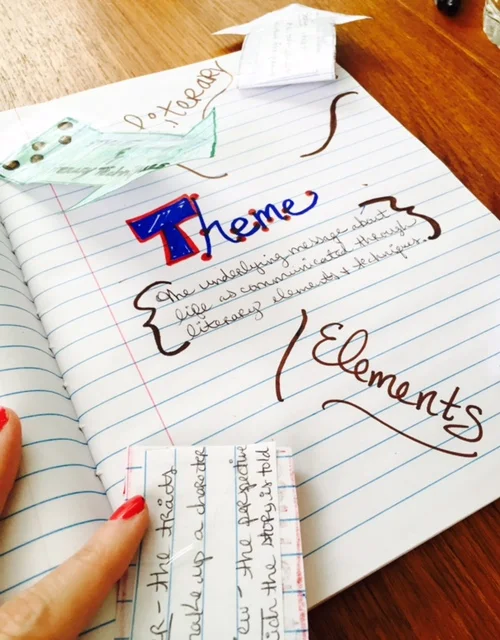 Literary
Theme
The underlying message about
life as communicated through
literary elements & techniques.
Elements
R - the traits
make up a character
ew - the perspective
ich the story is told